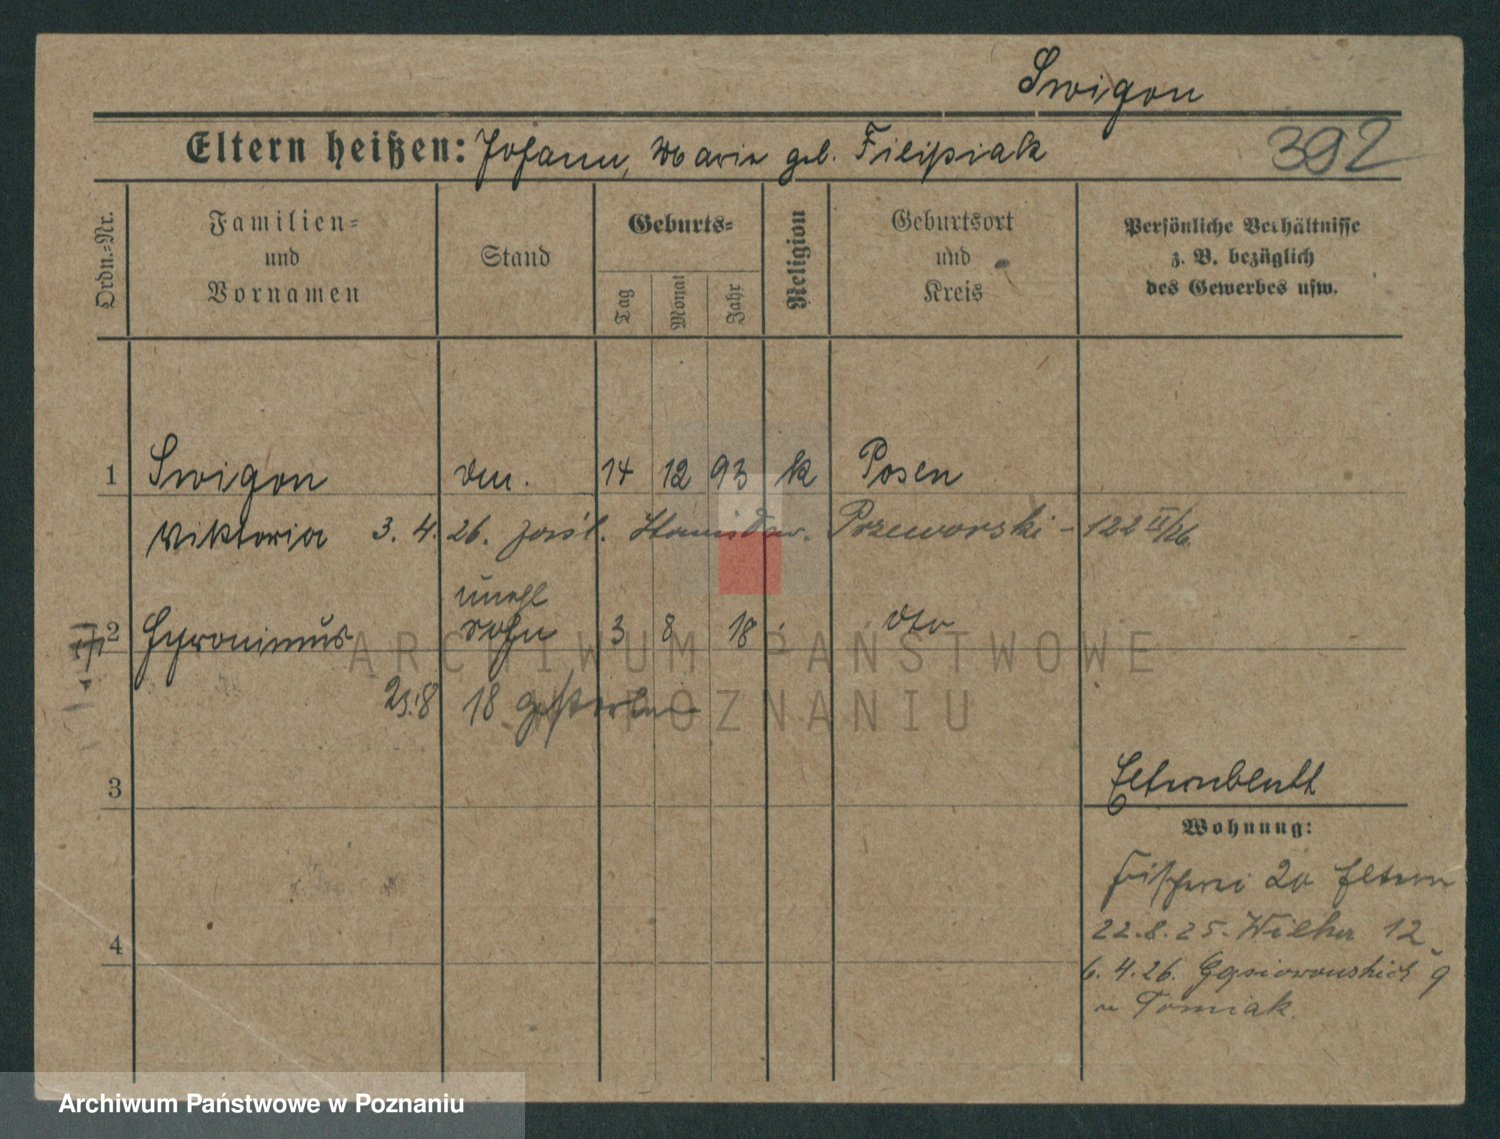 Swigon
Eltern heißen: Johann, Maria geb. Filipiak
392
Ordn.-Nr.
Familien- und Vornamen
Stand
Geburts-
Tag
Monat
Jahr
Religion
Geburtsort und Kreis
Persönliche Verhältnisse z. B. bezüglich des Gewerbes usw.
1 Swigon 14 12 93 k Posen
Viktoria 3. 4. 26. zaśl. Stanisław. Przeworski - 122
unehl
2 Hyronimus Sohn 3 8 18 dto
18 gestorben
ARCHIWUM PAŃSTWOWE
W POZNANIU
3
Wohnung:
Fischerei 20 Eltern
22.8.25. 12
4
6.4.26. Gąsiorowskich 9
u Tomiak.
Archiwum Państwowe w Poznaniu